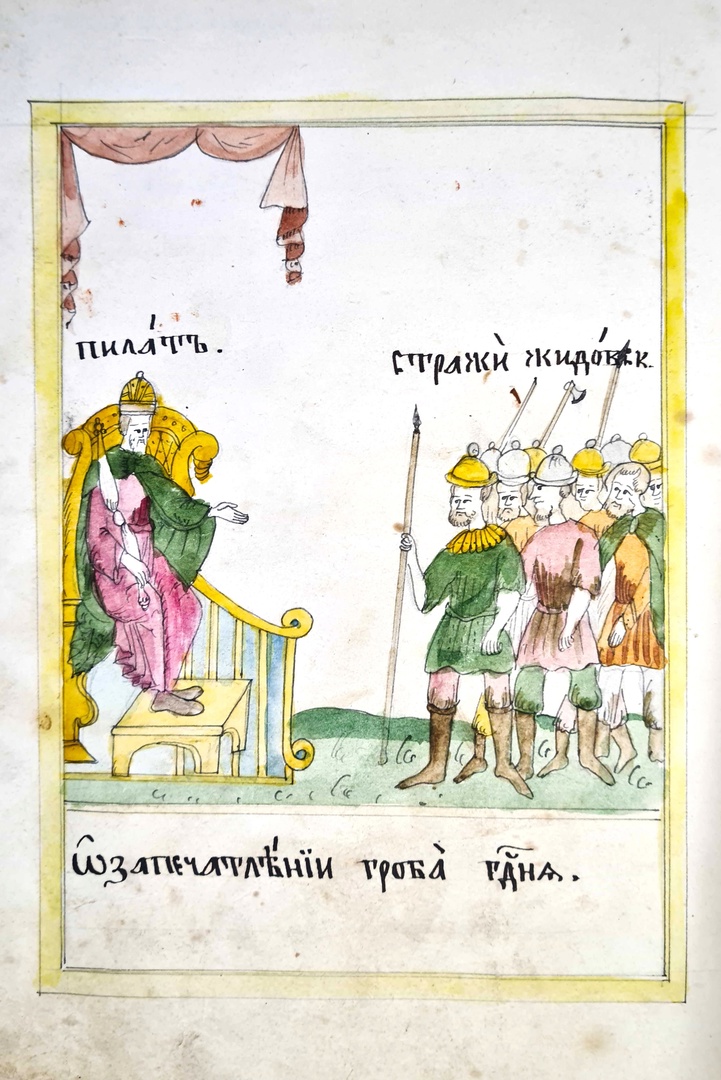 пила́тъ.
стражѝ жидо́вск.
Ѡ запечатлѣ́нїи гроба̀ гдⷭ҇нѧ.